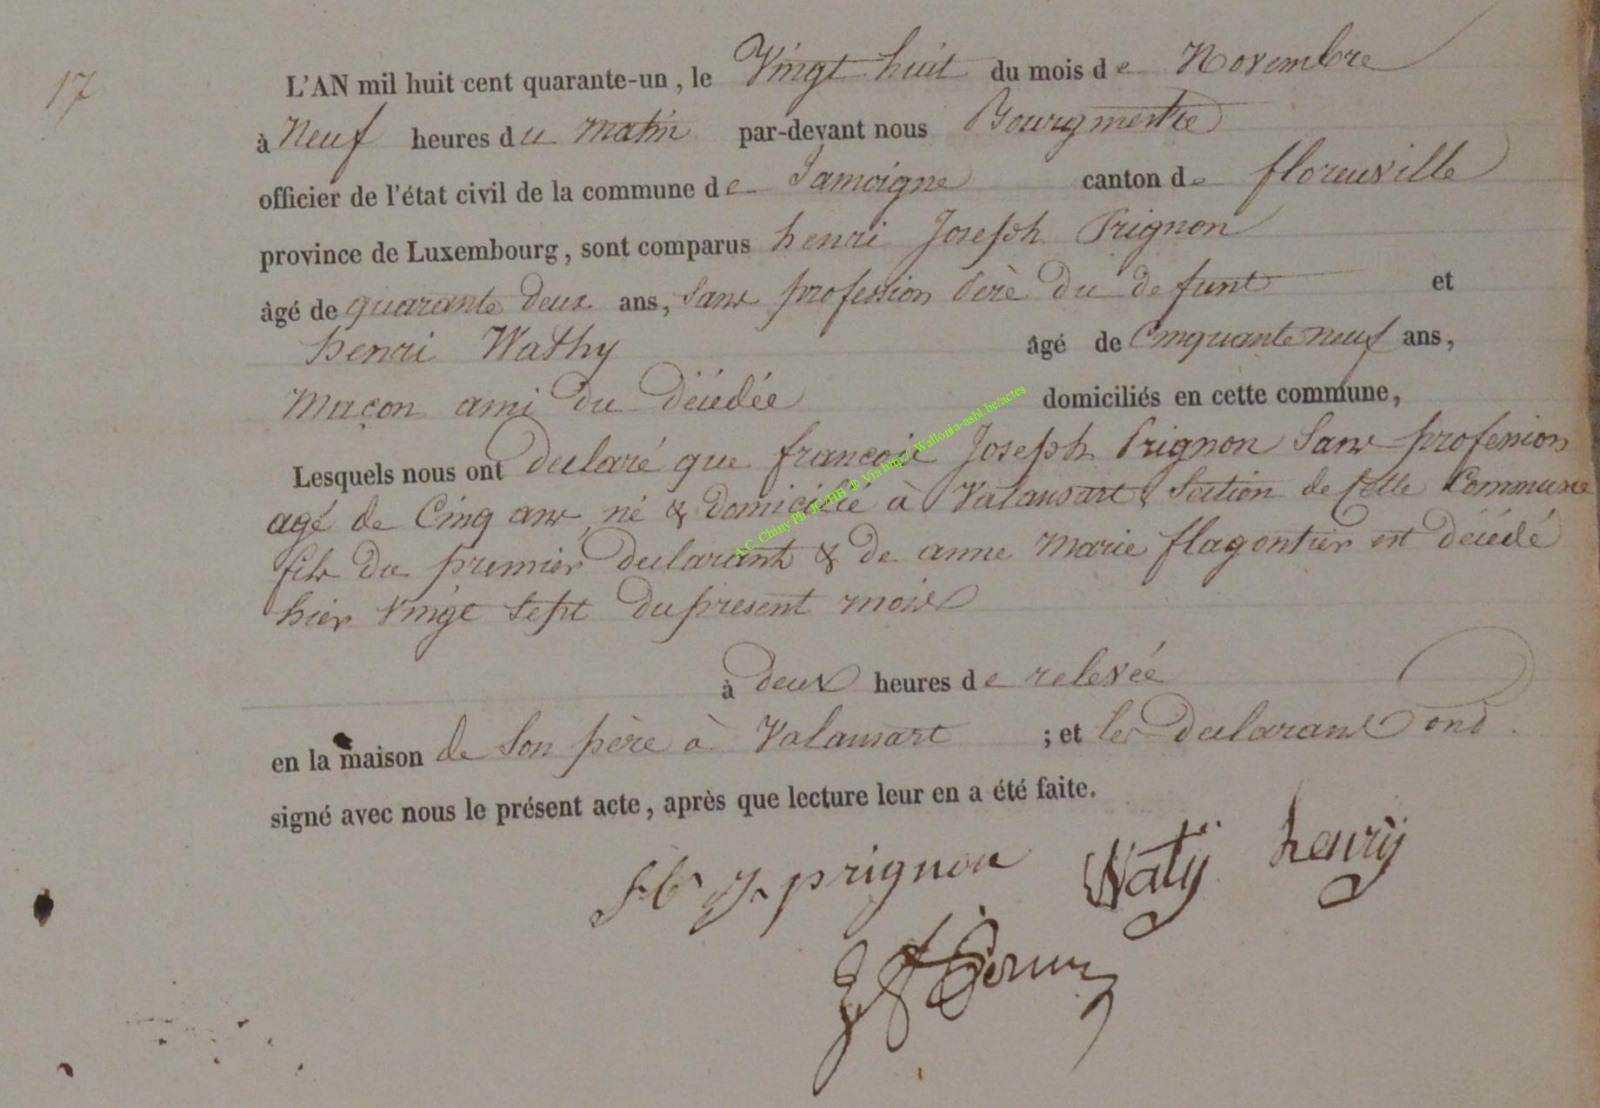 17
L'AN mil huit cent quarante-un, le Vingt huit du mois de Novembre
à Neuf heures du matin par-devant nous Bourgmestre
officier de l'état civil de la commune de Jamoigne canton de florenville
province de Luxembourg, sont comparus henri Joseph Prignon
âgé de quarante deux ans, sans profession père du defunt et
henri Wathy âgé de Cinquante neuf ans,
Maçon ami du décédée domiciliés en cette commune,
Lesquels nous ont déclaré que françois Joseph Prignon sans profession
agé de Cinq ans né & domicilié à Valansart section de cette Commune
fils du premier declarant & de anne Marie flagontier est décédé
hier Vingt sept du present mois
à deux heures de relevée
en la maison de son père à Valansart ; et les declarans ont
signé avec nous le présent acte, après que lecture leur en a été faite.
prignon Watÿ henrÿ